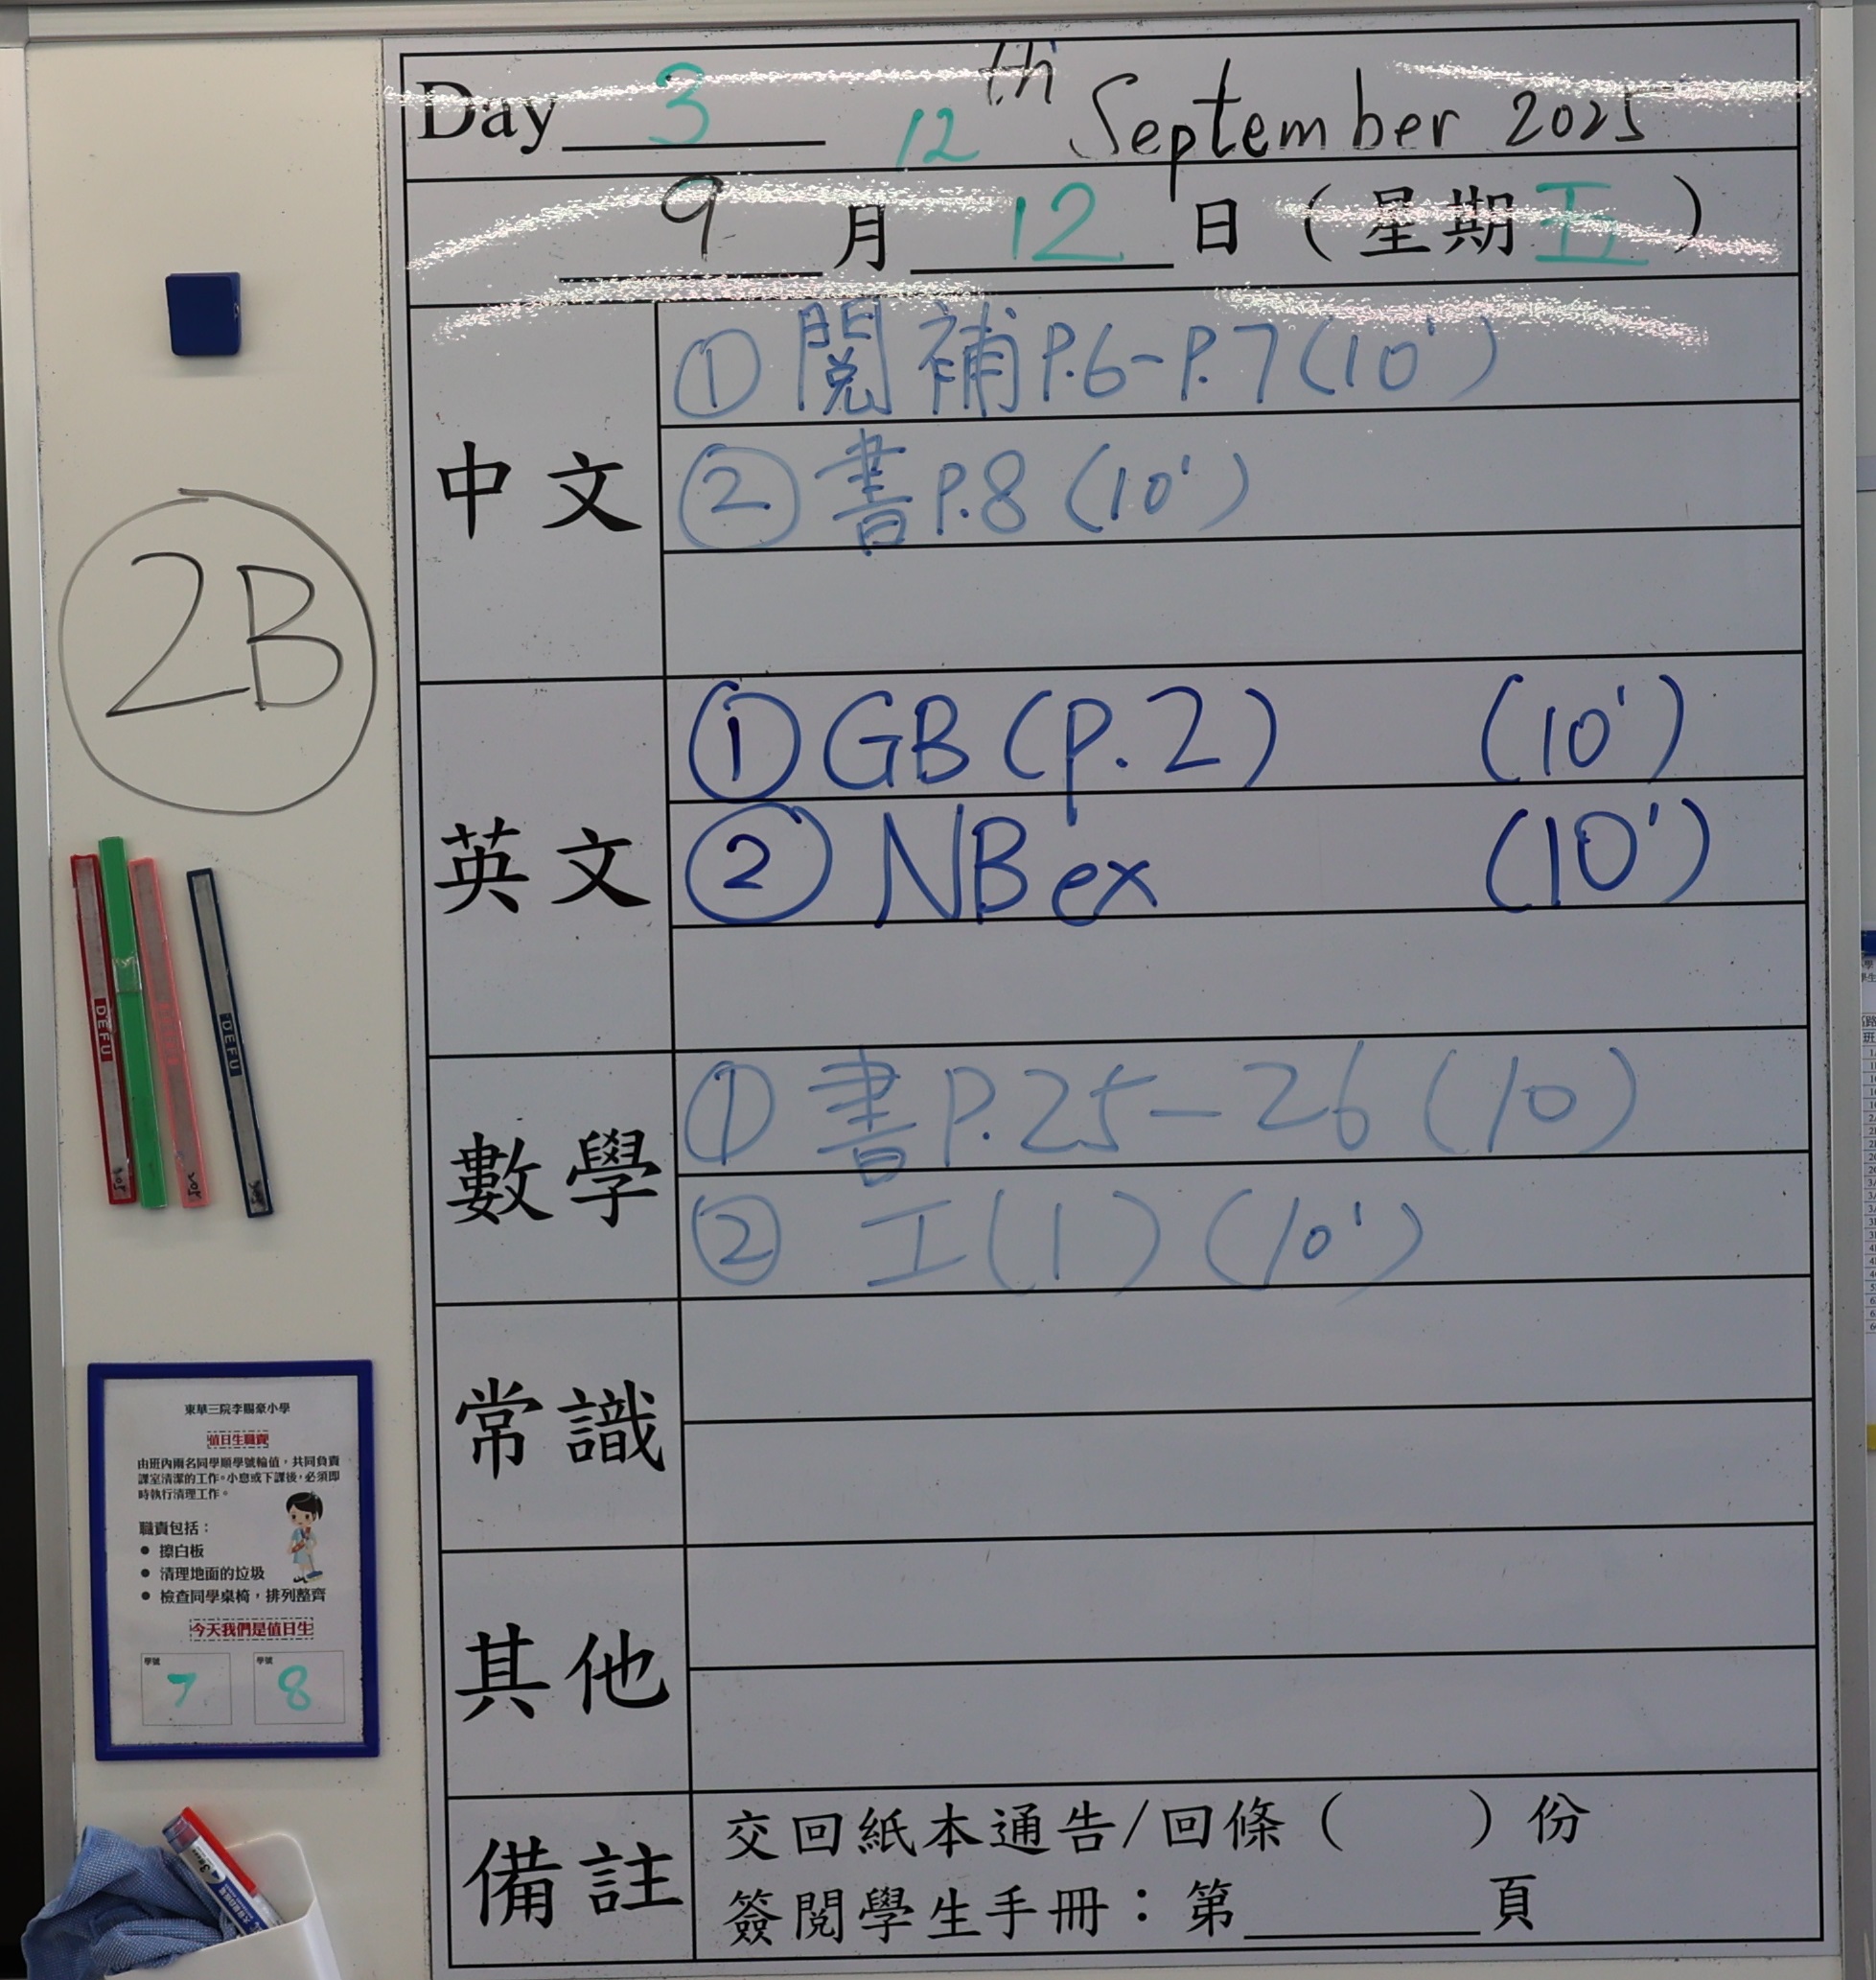 Day 3 12th September 2025
9月12日（星期五）
中文
① 閱補P.6-P.7(10')
② 書P.8(10')
2B
英文
① GB(p.2) (10')
② NB ex (10')
DEFU
DEFU
數學
① 書P.25-26(10)
② 工(1)(10')
常識
其他
備註
交回紙本通告/回條（ ）份
簽閱學生手冊：第 頁
東華三院李賜豪小學
值日生職責
由班內兩名同學順學號輪值，共同負責
課室清潔的工作。小息或下課後，必須即
時執行清理工作。
職責包括：
• 擦白板
• 清理地面的垃圾
• 檢查同學桌椅，排列整齊
今天我們是值日生
學號 學號
7 8